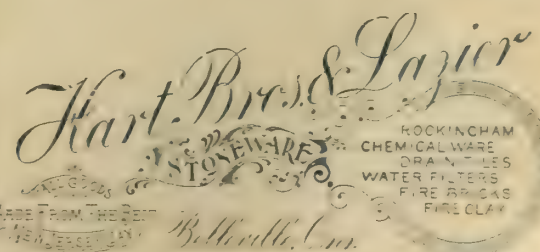 Hart Bros. & Lazier
STONEWARE
ROCKINGHAM
CHEMICAL WARE
DRAIN TILES
WATER FILTERS
FIRE BRICKS
FIRE CLAY
ALL GOODS
MADE FROM THE BEST
NEW JERSEY CLAY
Belleville, Ont.